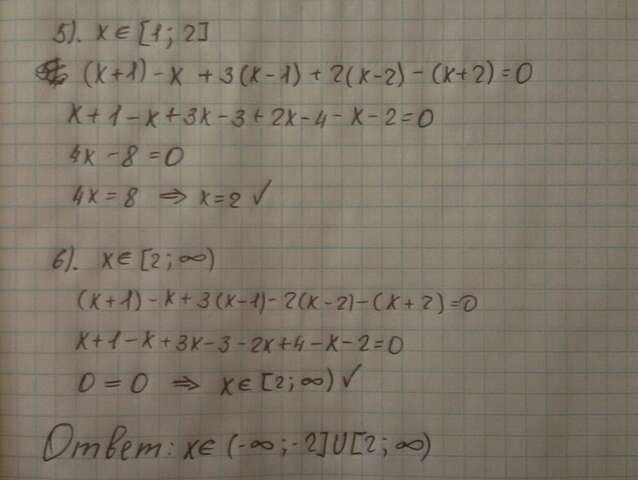 5). x ∈ [1; 2]
(x+1) - x + 3(x-1) + 2(x-2) - (x+2) = 0
x + 1 - x + 3x - 3 + 2x - 4 - x - 2 = 0
4x - 8 = 0
4x = 8 ⇒ x = 2 ✓
6). x ∈ [2; ∞)
(x+1) - x + 3(x-1) - 2(x-2) - (x+2) = 0
x + 1 - x + 3x - 3 - 2x + 4 - x - 2 = 0
0 = 0 ⇒ x ∈ [2; ∞) ✓
Ответ: x ∈ (-∞; -2] U [2; ∞)